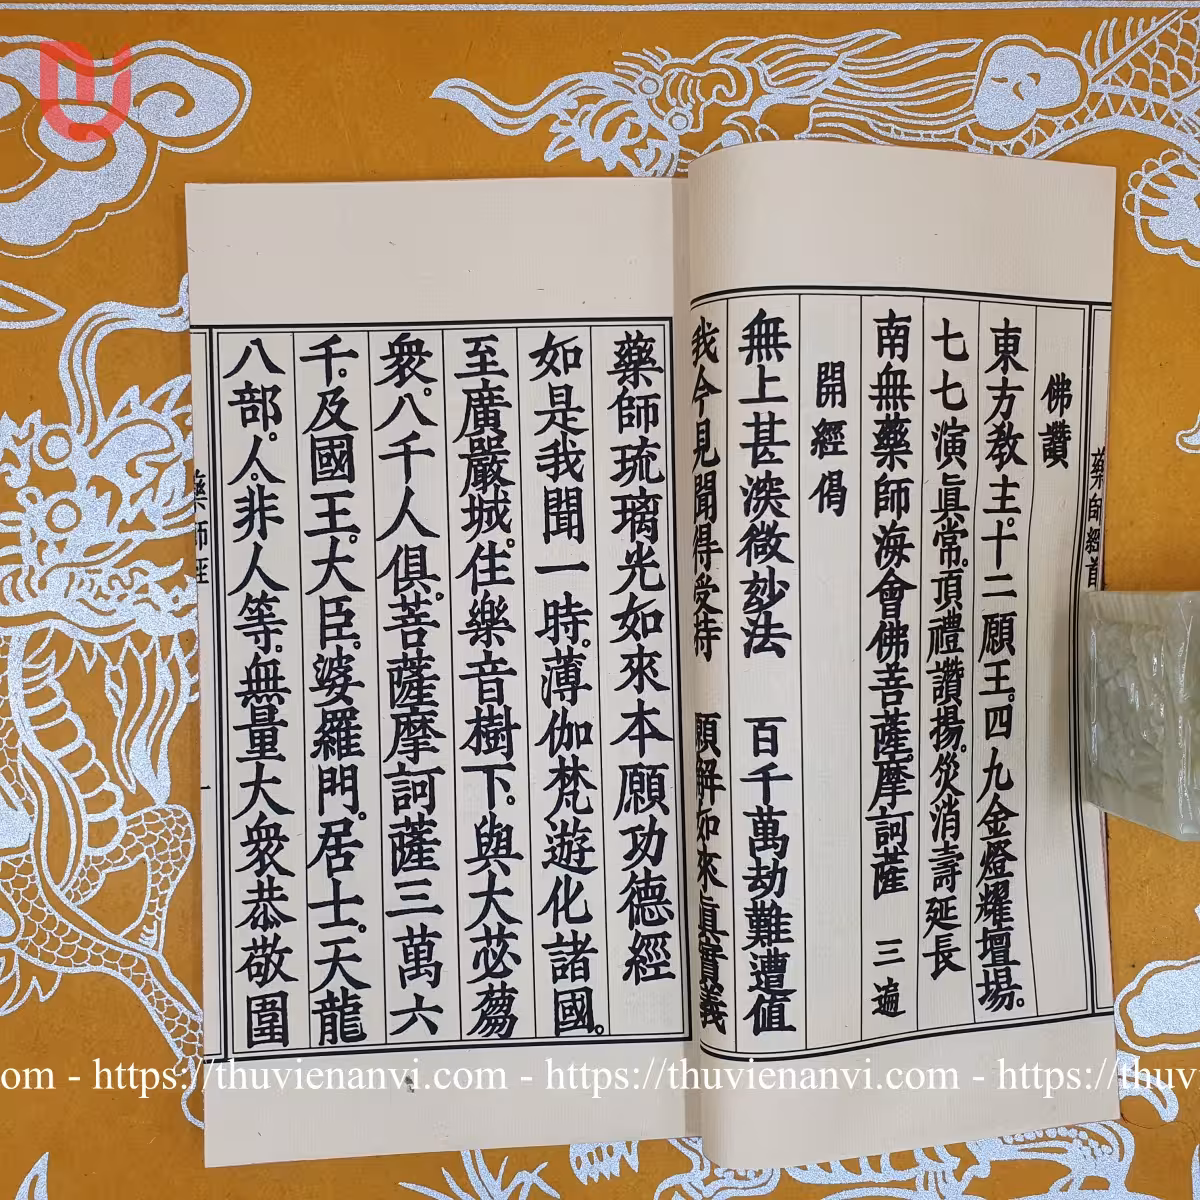 佛讚
東方教主。十二願王。四九金燈耀壇場。
七七演眞常。頂禮讚揚。災消壽延長
南無藥師海會佛菩薩摩訶薩 三遍
開經偈
無上甚深微玅法 百千萬劫難遭值
我今見聞得受持 願解如來眞實義
藥師經首
藥師琉璃光如來本願功德經
如是我聞一時。薄伽梵遊化諸國。
至廣嚴城。住樂音樹下。與大苾蒭
衆。八千人俱。菩薩摩訶薩三萬六
千。及國王。大臣。婆羅門。居士。天龍
八部。人。非人等。無量大衆恭敬圍
藥師経
一
om - https://thuvienanvi.com - https://thuvienanvi.com - https://thuv